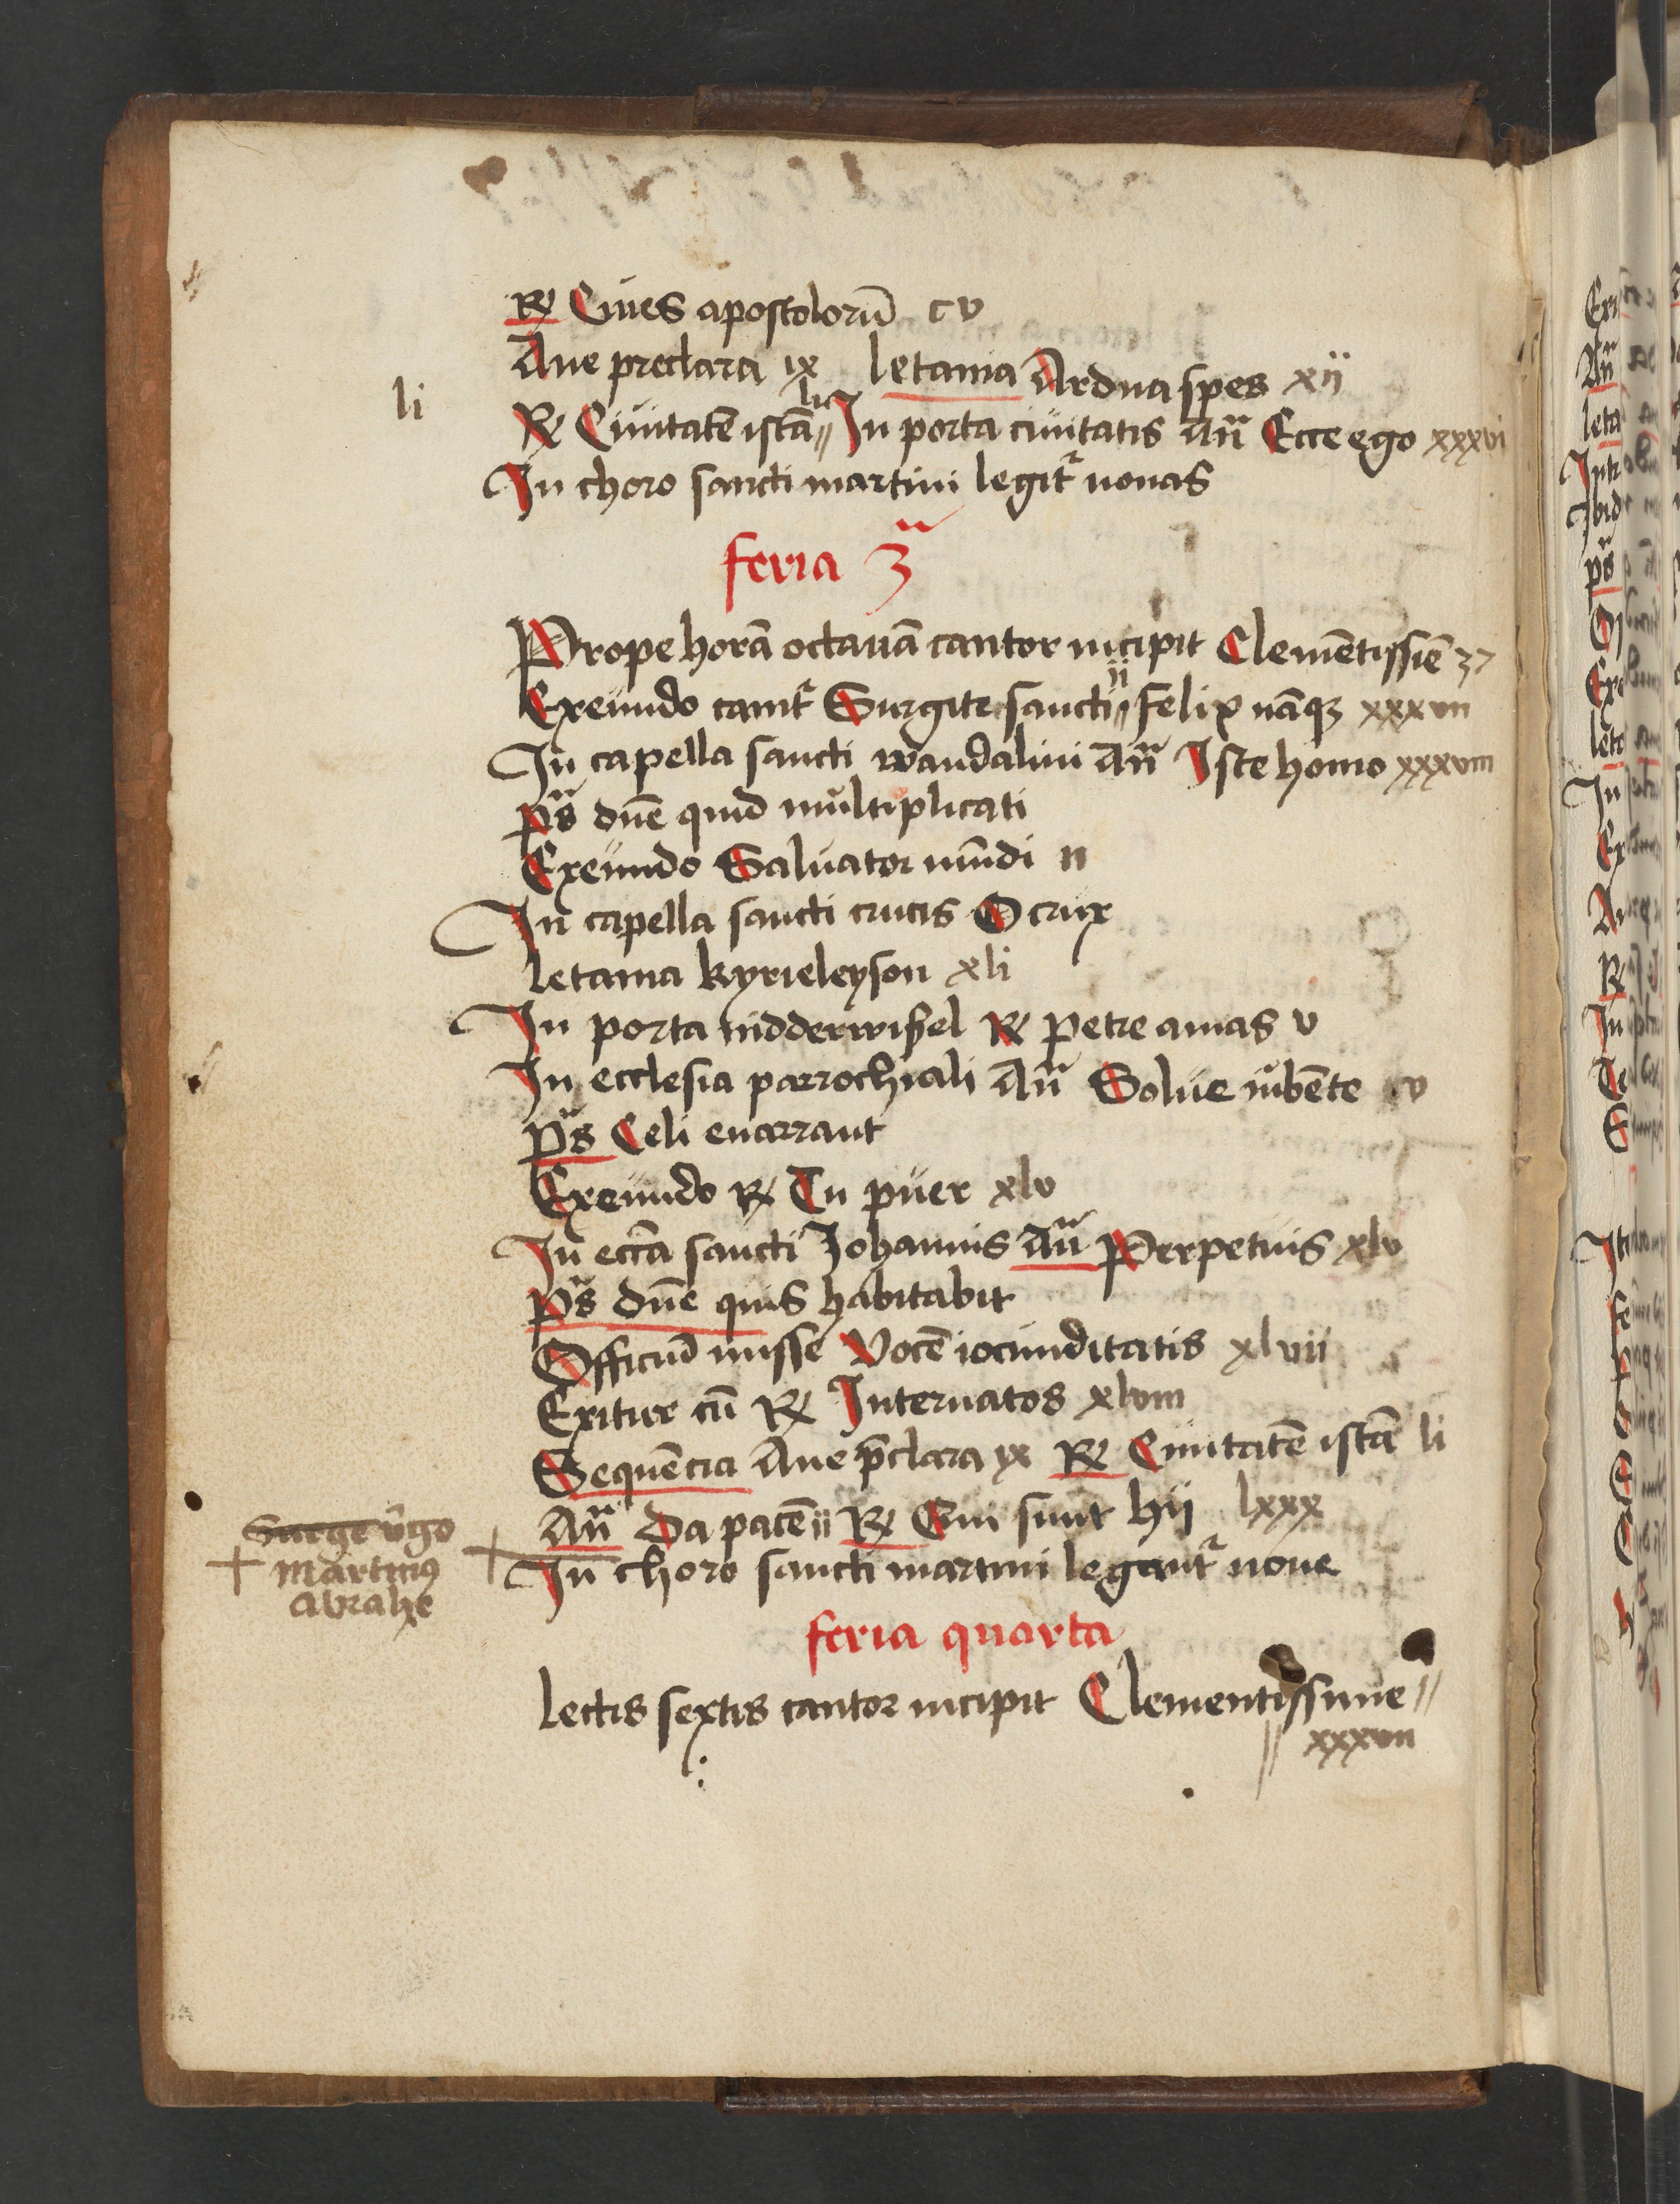 R Ciues apostolorū cv
Aue preclara ix letania Ardua spes xij
li
R Ciuitatē istā lij In porta ciuitatis Añ Ecce ego xxxvi
In choro sancti martini legit᷑ nonas
feria 3ᵃ
Prope horā octauā cantor incipit Clemētissiē 37
Exeundo canit᷑ Surgite sancti ij felix nāqꝫ xxxvii
In capella sancti wandalini Añ Iste homo xxxviii
ps̄ dn̄e quid multiplicati
Exeundo Saluator mūdi ii
In capella sancti crucis O crux
letania kyrieleyson xli
In porta nidderwißel R Petre amas v
In ecclesia parrochiali Añ Solue iubēte cv
ps̄ Celi enarrant
Exeundo R Tu puer xlv
In eccīa sancti Johannis Añ Perpetuis xlv
ps̄ dn̄e quis habitabit
Officiū misse Vocē iocunditatis xlvii
Exitur cū R Internatos xlviii
Sequēcia Aue p̄clara ix R Ciuitatē istā li
Añ Da pacē ii R Qui sunt hij lxxx
Surge v̄go
Martinꝰ
Abrahe
In choro sancti martini legant᷑ none
feria quarta
lectis sextis cantor incipit Clementissime
xxxvii